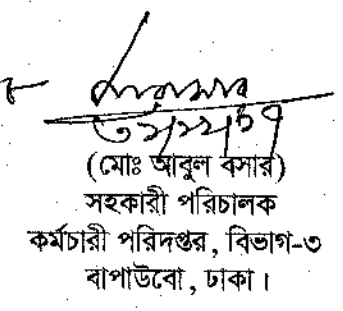 (মোঃ আবুল বসার)
সহকারী পরিচালক
কর্মচারী পরিদপ্তর, বিভাগ-৩
বাপাউবো, ঢাকা।